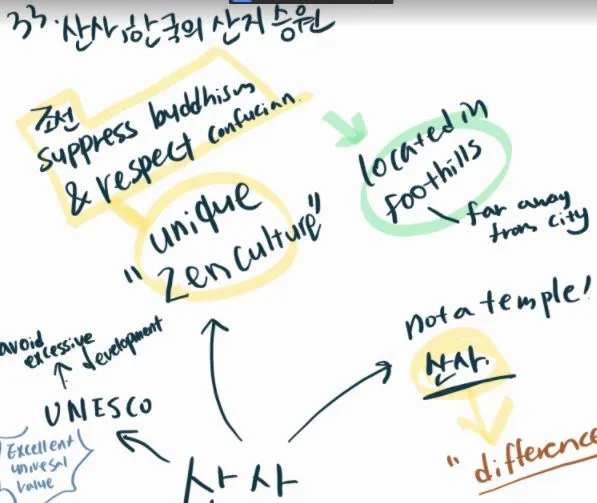 33. 산사, 한국의 산지 승원
조선
suppress buddhism
& respect confucian.
unique
"zen culture"
located in
foothills
far away
from city
not a temple!
산사.
"difference
avoid
excessive
development
UNESCO
Excellent
univesal
value
산사